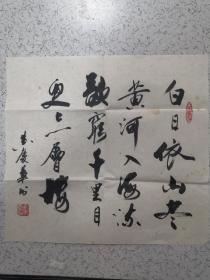 白日依山尽
黄河入海流
欲穷千里目
更上层楼